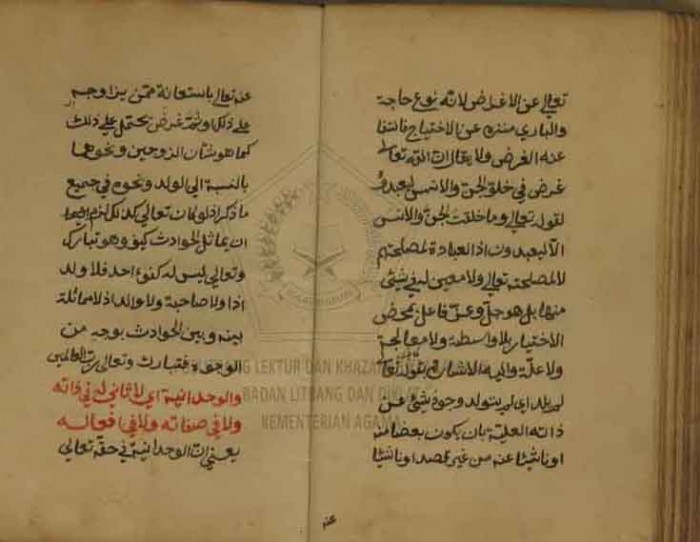 تعالى عن الاغراض لانه نوع حاجة
والبارى منزه عن الاحتياج فانتفا
عنه الغرض ولا يقال ان الله تعالى
غرض فى خلق الجن والانس ليعبدوه
لقوله تعالى وما خلقت الجن والانس
الا ليعبدون اذ العبادة لمصلحتهم
لا لمصلحته تعالى ولا معين له فى شيئ
منها بل هو جل وعز فاعل بمحض
الاختيار بلا واسطة ولا معالجة
ولا علة واليه الاشارة بقوله تعالى
لم يلد اى لم يتولد وجود شيئ عن
ذاته العلية بان يكون بعضا منه
او ناشيئا عنه من غير قصد او ناشيئا
عنه
عنه تعالى باستعانة ممن يزاوجه
على ذلك او ثمة غرض يحتمل على ذلك
كما هو شان الزوجين ونحوهما
بالنسبة الى الولد ونحوه فى جميع
ما ذكر اذ لو كان تعالى كذلك لزم ايضا
ان يماثل الحوادث كيف وهو تبارك
وتعالى ليس له كفوءا احد فلا ولد
اذا ولا صاحبة ولا والد اذ لا مماثلة
بينه وبين الحوادث بوجه من
الوجوه فتبارك وتعالى رب العالمين
والوحدانية اى لا ثانى له فى ذاته
ولا فى صفاته ولا فى افعاله
يعنى ان الوحدانية فى حقه تعالى
LEKTUR DAN KHAZANAH
BADAN LITBANG DAN DIKLAT
KEMENTERIAN AGAMA